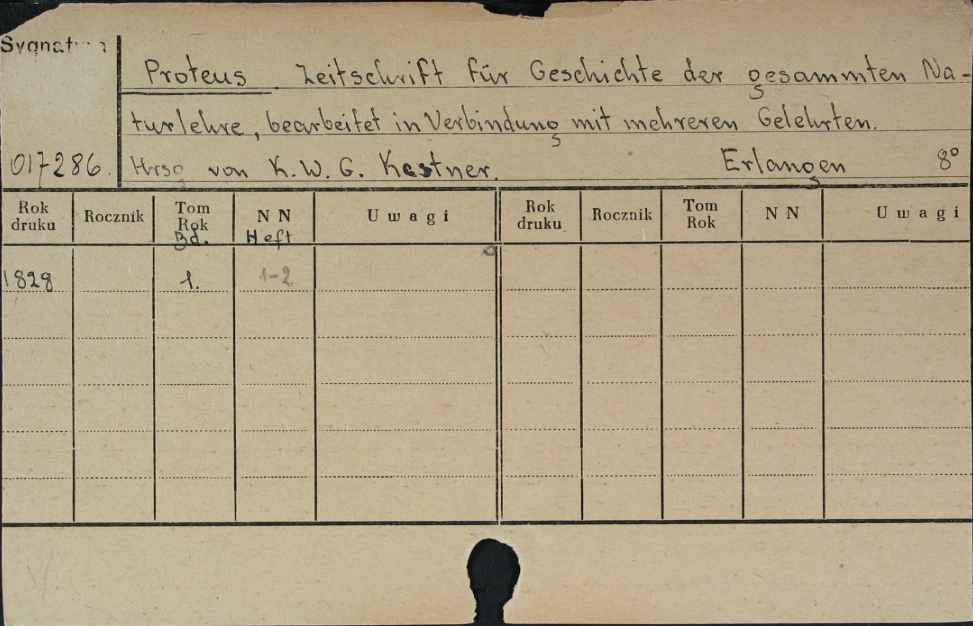 Sygnatura
Proteus Zeitschrift für Geschichte der gesammten Na-
turlehre, bearbeitet in Verbindung mit mehreren Gelehrten.
017286. Hrsg von K. W. G. Kastner. Erlangen 8°
Rok druku Rocznik Tom Rok NN Uwagi Rok druku Rocznik Tom Rok NN Uwagi
Bd. Heft
1828 1. 1-2